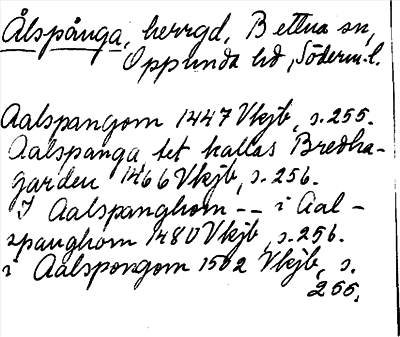 Ålspånga, herrgd, Bettna sn,
Oppunda hd, Söderm. l.
Aalspangom 1447 Vkjb, s. 255.
Aalspanga tet kallas Bredha-
garden 1466 Vkjb, s. 256.
I Aalspanghom -- i Aal-
spanghom 1480 Vkjb, s. 256.
i Aalspongom 1502 Vkjb, s.
255.